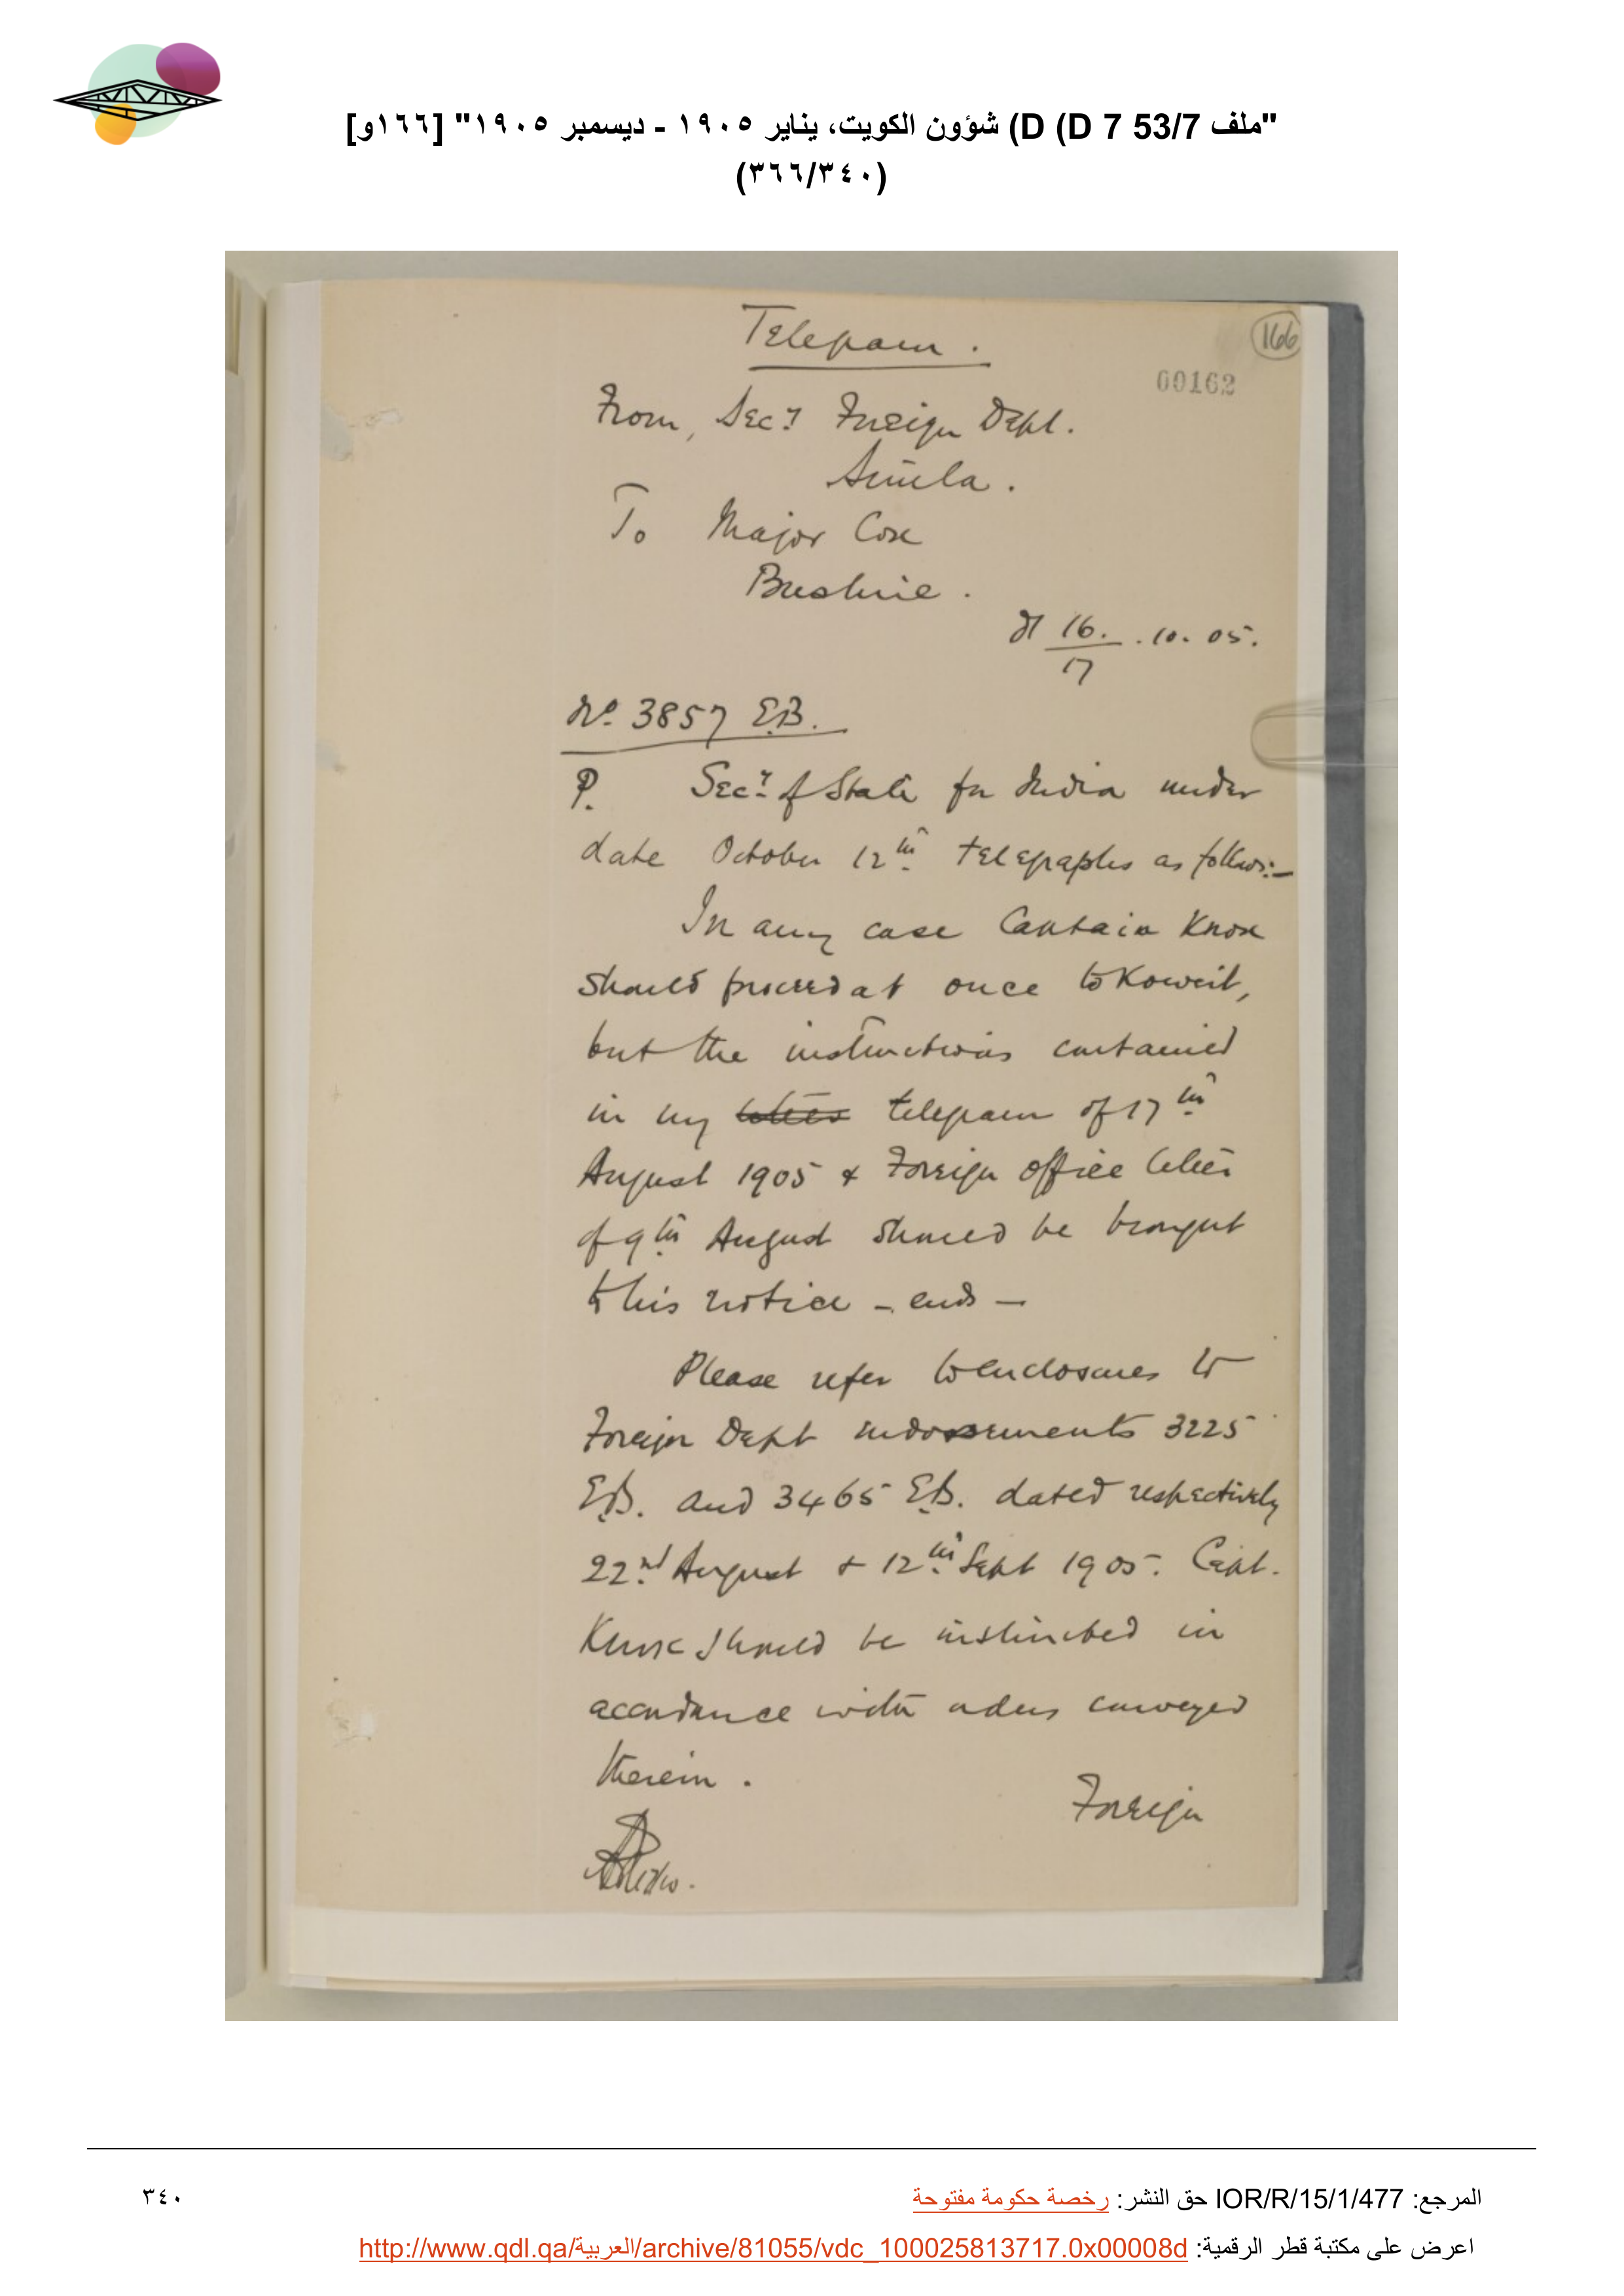 "ملف 53/7 D 7) D) شؤون الكويت، يناير ١٩٠٥ - ديسمبر ١٩٠٥" [١٦٦و]
(٣٦٦/٣٤٠)
Telegram.
166
00162
From, Secy Foreign Dept.
Simla.
To Major Cox
Bushire.
dt 16/17.10.05.
No. 3857 E.B.
P. Secy of State for India under
date October 12th telegraphs as follows:-
In any case Captain Knox
should proceed at once to Koweit,
but the instructions contained
in my letter telegram of 17th
August 1905 & Foreign office letter
of 9th August should be brought
to his notice - ends -
Please refer to enclosures to
Foreign Dept endorsements 3225
E.B. and 3465 E.B. dated respectively
22nd August & 12th Sept 1905. Capt.
Knox should be instructed in
accordance with orders conveyed
therein.
Foreign
المرجع: IOR/R/15/1/477 حق النشر: رخصة حكومة مفتوحة
٣٤٠
اعرض على مكتبة قطر الرقمية: http://www.qdl.qa/العربية/archive/81055/vdc_100025813717.0x00008d